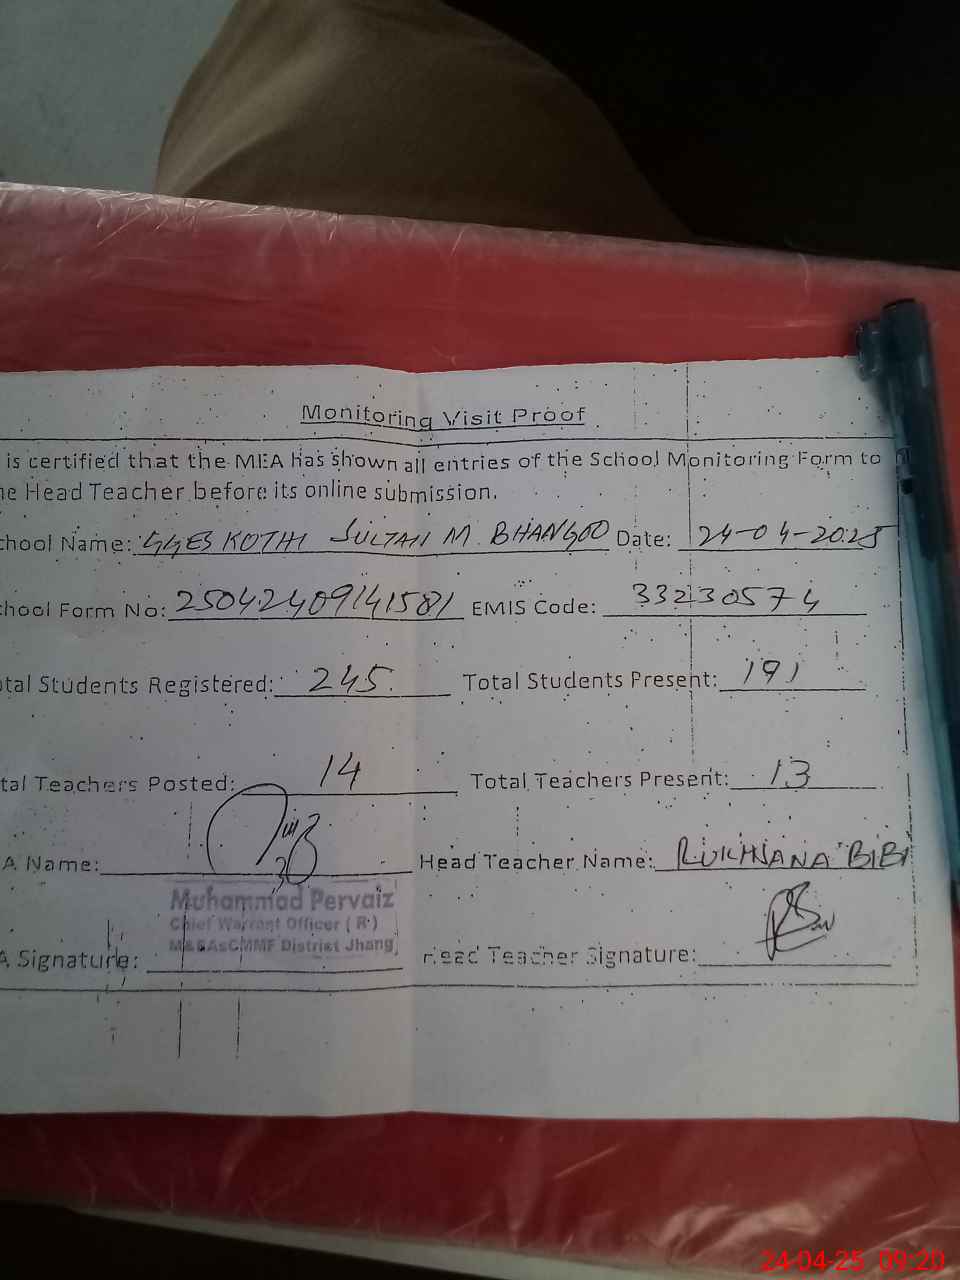 Monitoring Visit Proof
is certified that the MEA has shown all entries of the School Monitoring Form to
he Head Teacher before its online submission.
chool Name: GGES KOTHI SULTAN M. BHANGOO Date: 24-04-2025
chool Form No: 25042409141581 EMIS Code: 33230574
otal Students Registered: 245 Total Students Present: 191
tal Teachers Posted: 14 Total Teachers Present: 13
A Name: Head Teacher Name: RUKHSANA BIBI
Muhammad Pervaiz
Chief Warrant Officer ( R )
District Jhang
A Signature: Head Teacher Signature:
24-04-25 09:20